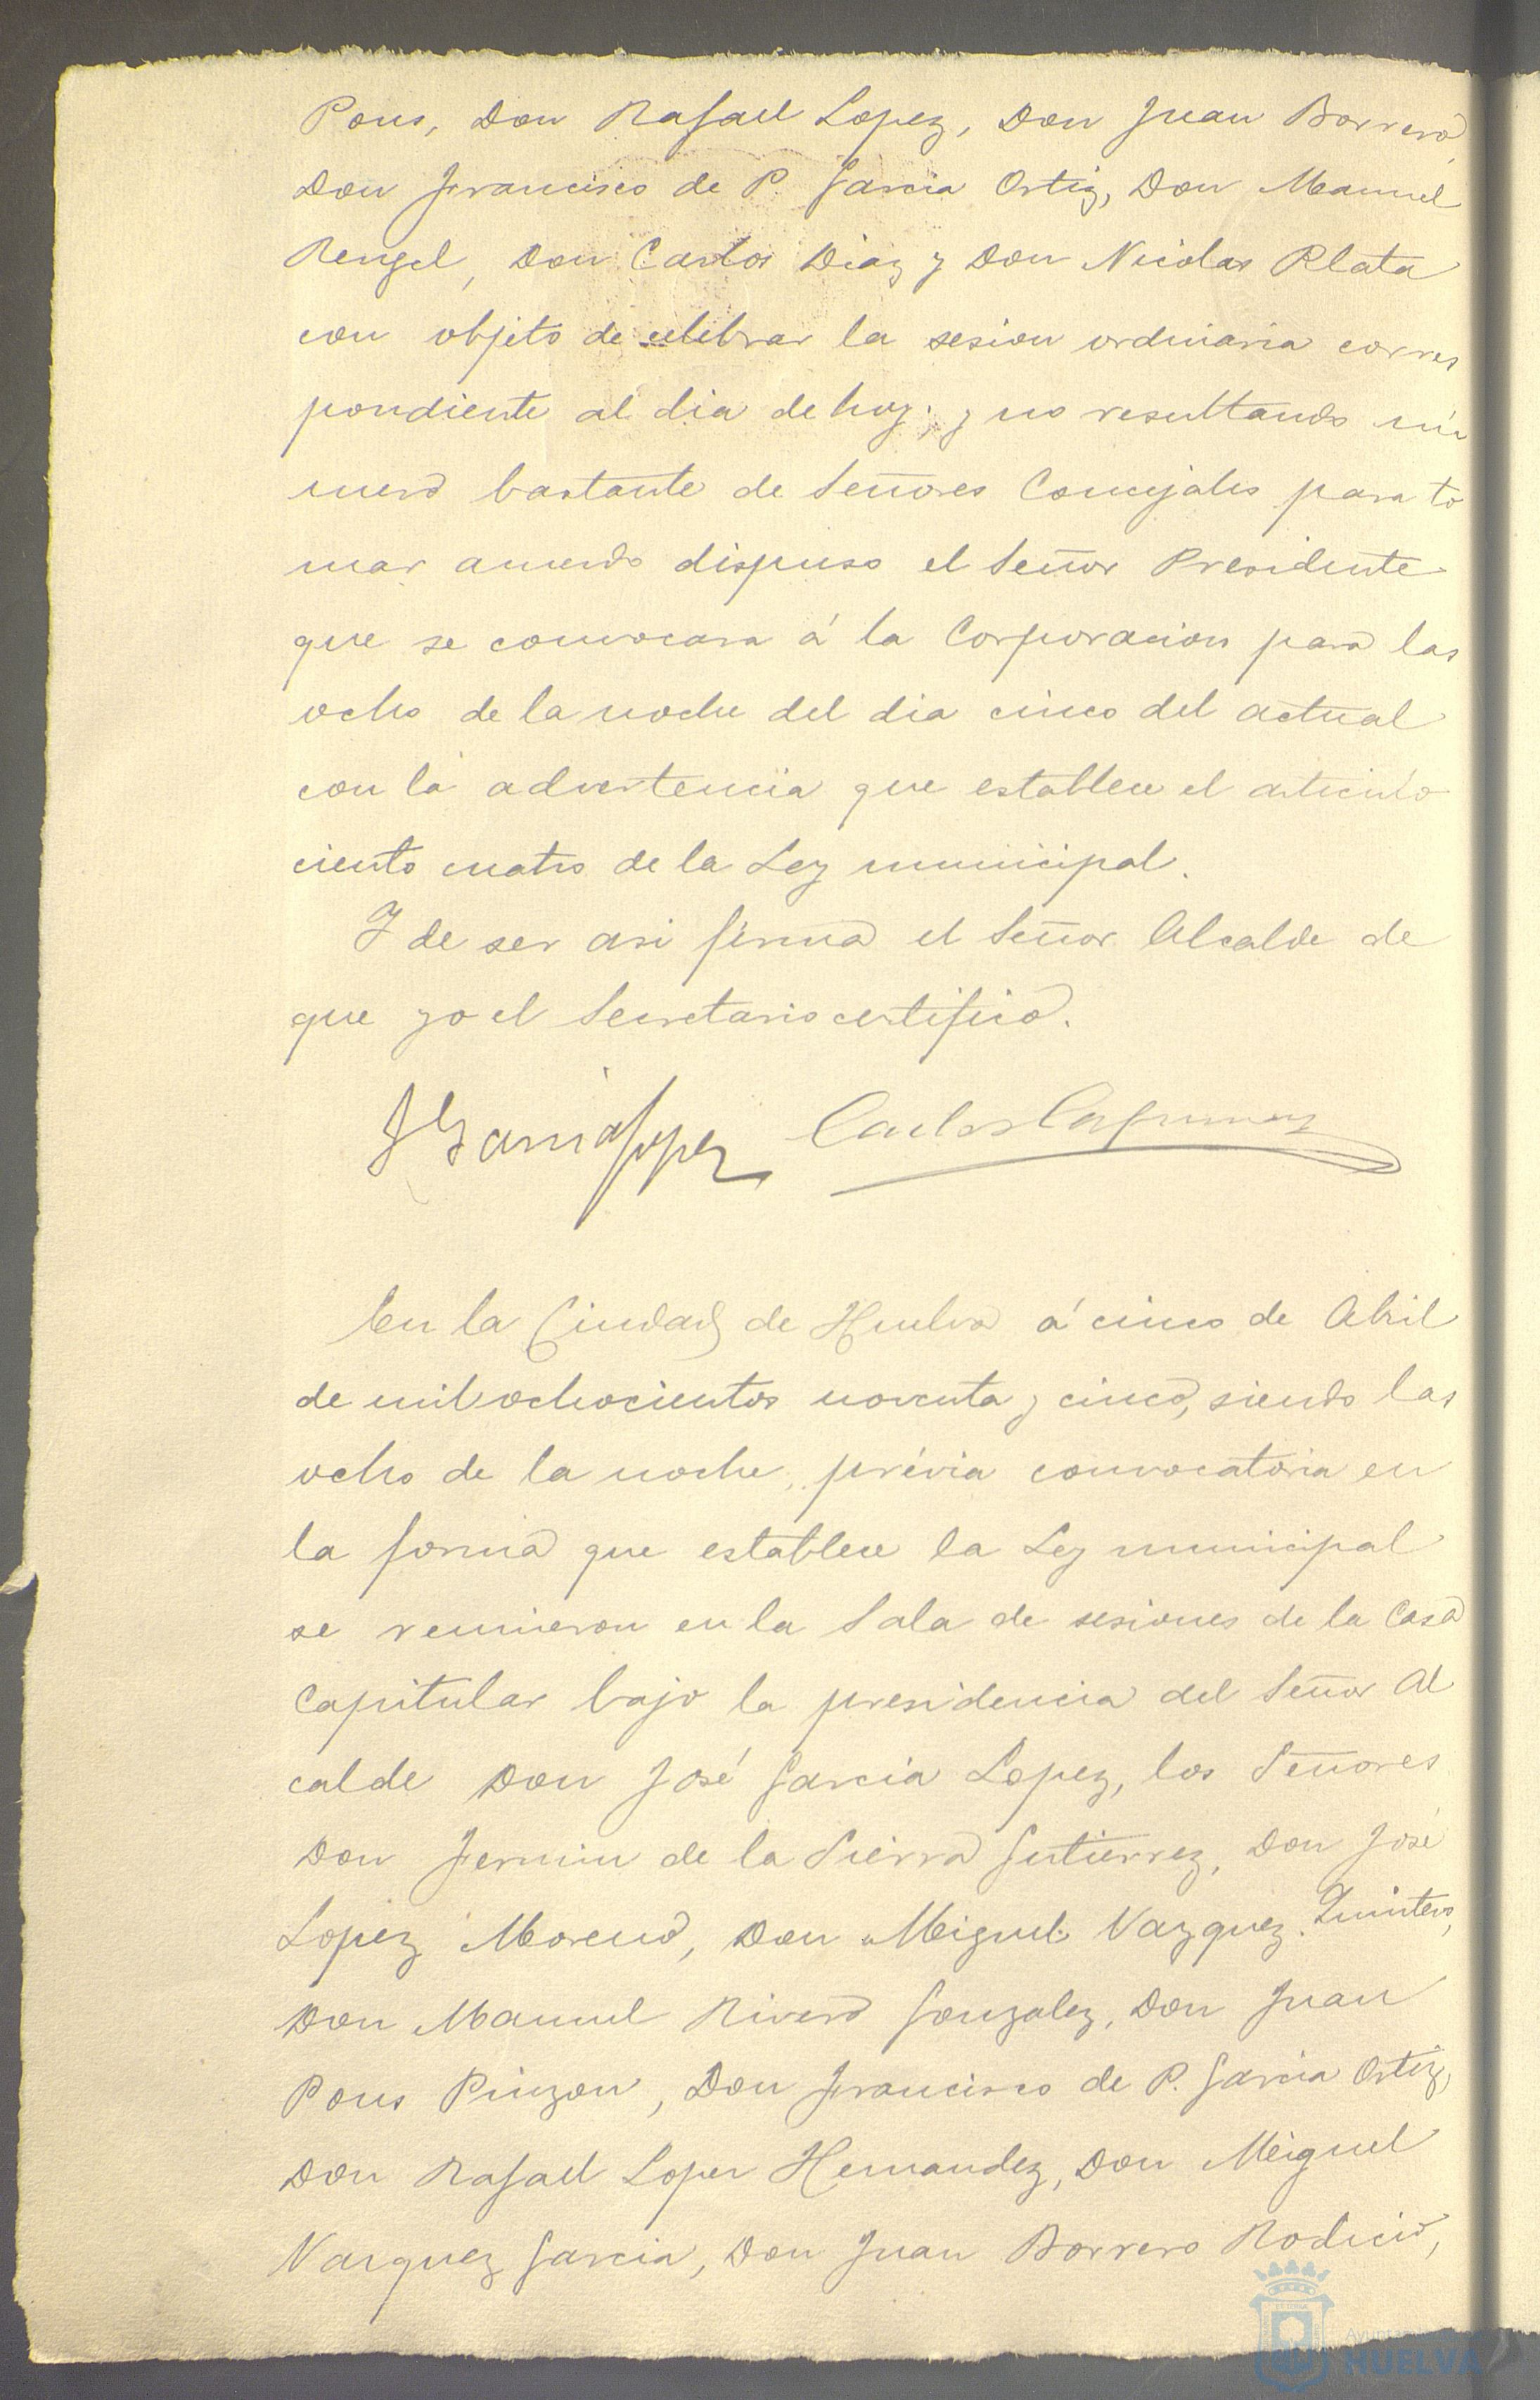 Pons, Don Rafael Lopez, Don Juan Borrero,
Don Francisco de P. Garcia Ortiz, Don Manuel
Rengel, Don Carlos Diaz y Don Nicolas Plata
con objeto de celebrar la sesion ordinaria corres
pondiente al dia de hoy; y no resultando nú
mero bastante de Señores Concejales para to
mar acuerdo dispuso el Señor Presidente
que se convocara á la Corporacion para las
ocho de la noche del dia cinco del actual
con la advertencia que establece el articulo
ciento cuatro de la Ley municipal.
Y de ser asi firma el Señor Alcalde de
que yo el Secretario certifico.
J Garcia Lopez Carlos
En la Ciudad de Huelva á cinco de Abril
de mil ochocientos noventa y cinco, siendo las
ocho de la noche, prévia convocatoria en
la forma que establece la Ley municipal
se reunieron en la Sala de sesiones de la Casa
Capitular bajo la presidencia del Señor Al
calde Don José Garcia Lopez, los Señores
Don Fermin de la Sierra Gutierrez, Don José
Lopez Moreno, Don Miguel Vazquez Quintero,
Don Manuel Rivero Gonzalez, Don Juan
Pons Pinzon, Don Francisco de P. Garcia Ortiz,
Don Rafael Lopez Hernandez, Don Miguel
Vazquez Garcia, Don Juan Borrero Rodicio,
HUELVA